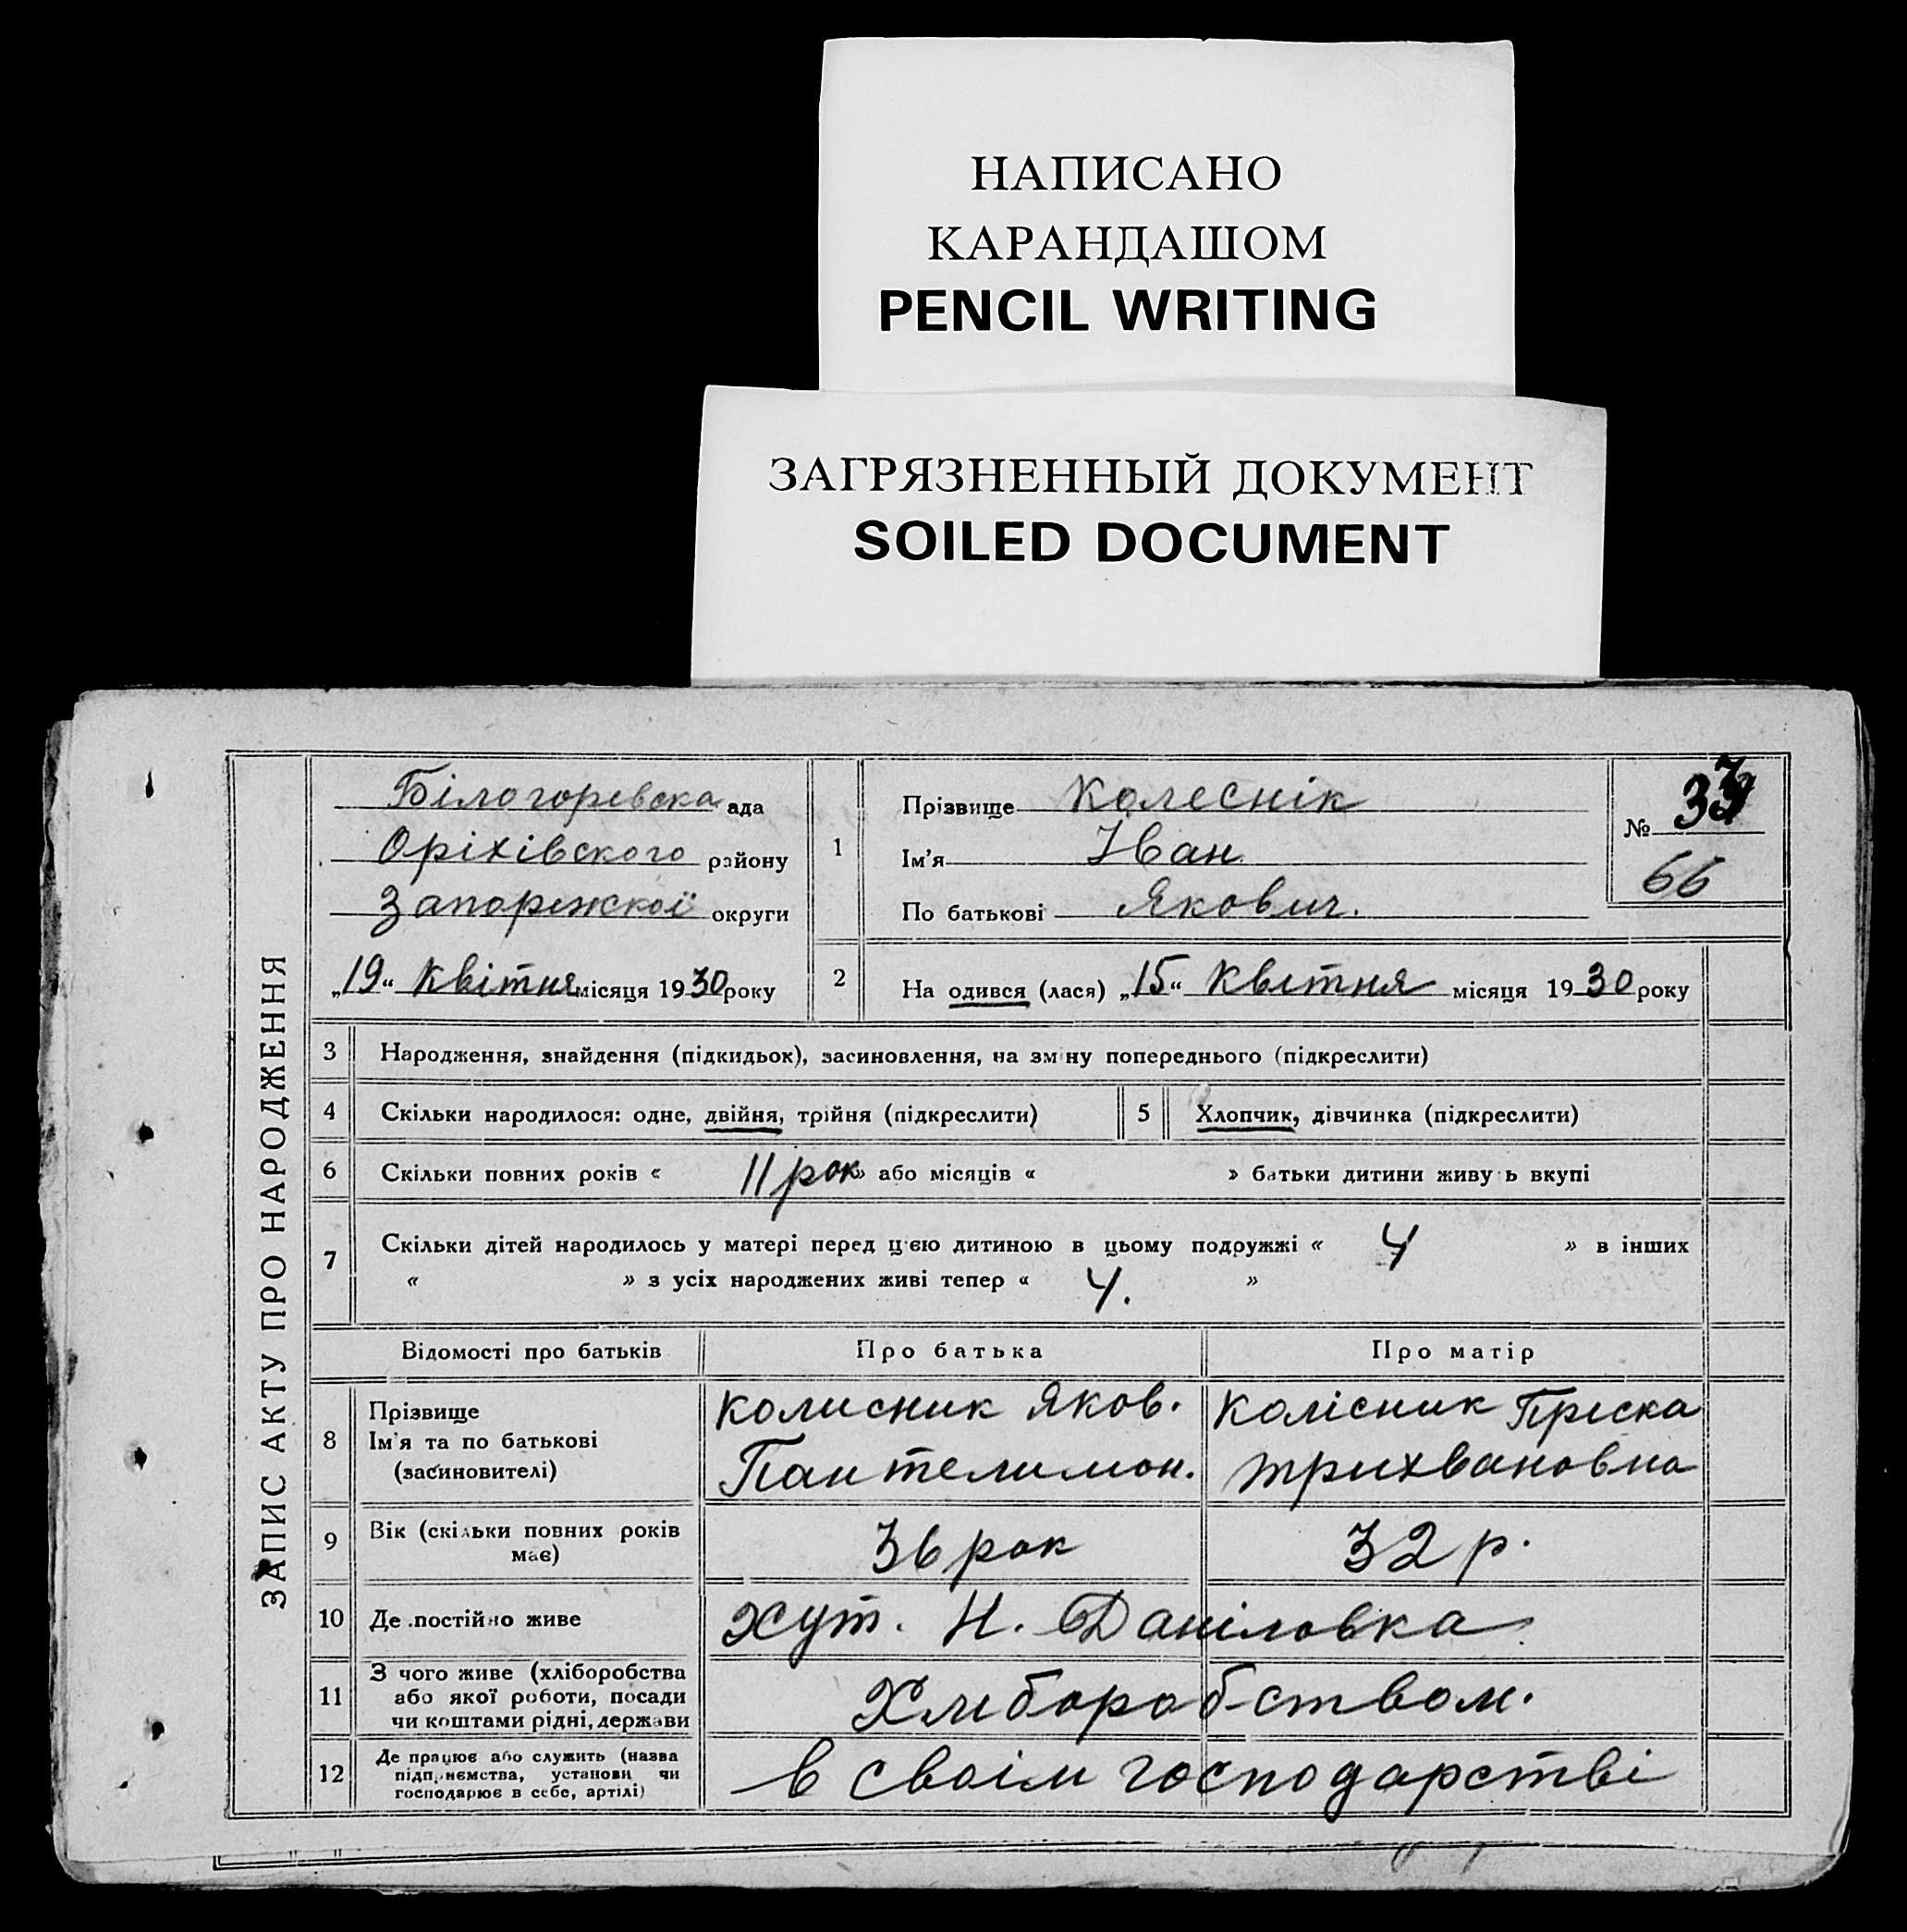 НАПИСАНО
КАРАНДАШОМ
PENCIL WRITING
ЗАГРЯЗНЕННЫЙ ДОКУМЕНТ
SOILED DOCUMENT
ЗАПИС АКТУ ПРО НАРОДЖЕННЯ
Білогоревска ада
Оріхівского району
Запорижскої округи
„19“ Квітня місяця 1930 року
1 Прізвище Колеснік
Ім’я Іван
По батькові Якович.
№ 33
66
2 На одився (лася) „15“ Квітня місяця 1930 року
3 Народження, знайдення (підкидьок), засиновлення, на зміну попереднього (підкреслити)
4 Скільки народилося: одне, двійня, трійня (підкреслити) 5 Хлопчик, дівчинка (підкреслити)
6 Скільки повних років « 11 рок » або місяців « » батьки дитини живу ь вкупі
7 Скільки дітей народилось у матері перед цією дитиною в цьому подружжі « 4 » в інших
« » з усіх народжених живі тепер « 4. »
Відомості про батьків Про батька Про матір
8 Прізвище
Ім’я та по батькові
(засиновителі)
Колисник Яков.
Пантелимон.
Колісник Пріска
Трихвановна
9 Вік (скільки повних років
має)
36 рок 32 р.
10 Де постійно живе хут. Н. Даніловка
11 З чого живе (хліборобства
або якої роботи, посади
чи коштами рідні, держави
Хлиборобством.
12 Де працює або служить (назва
підприємства, установи чи
господарює в себе, артілі)
в своїм господарстві